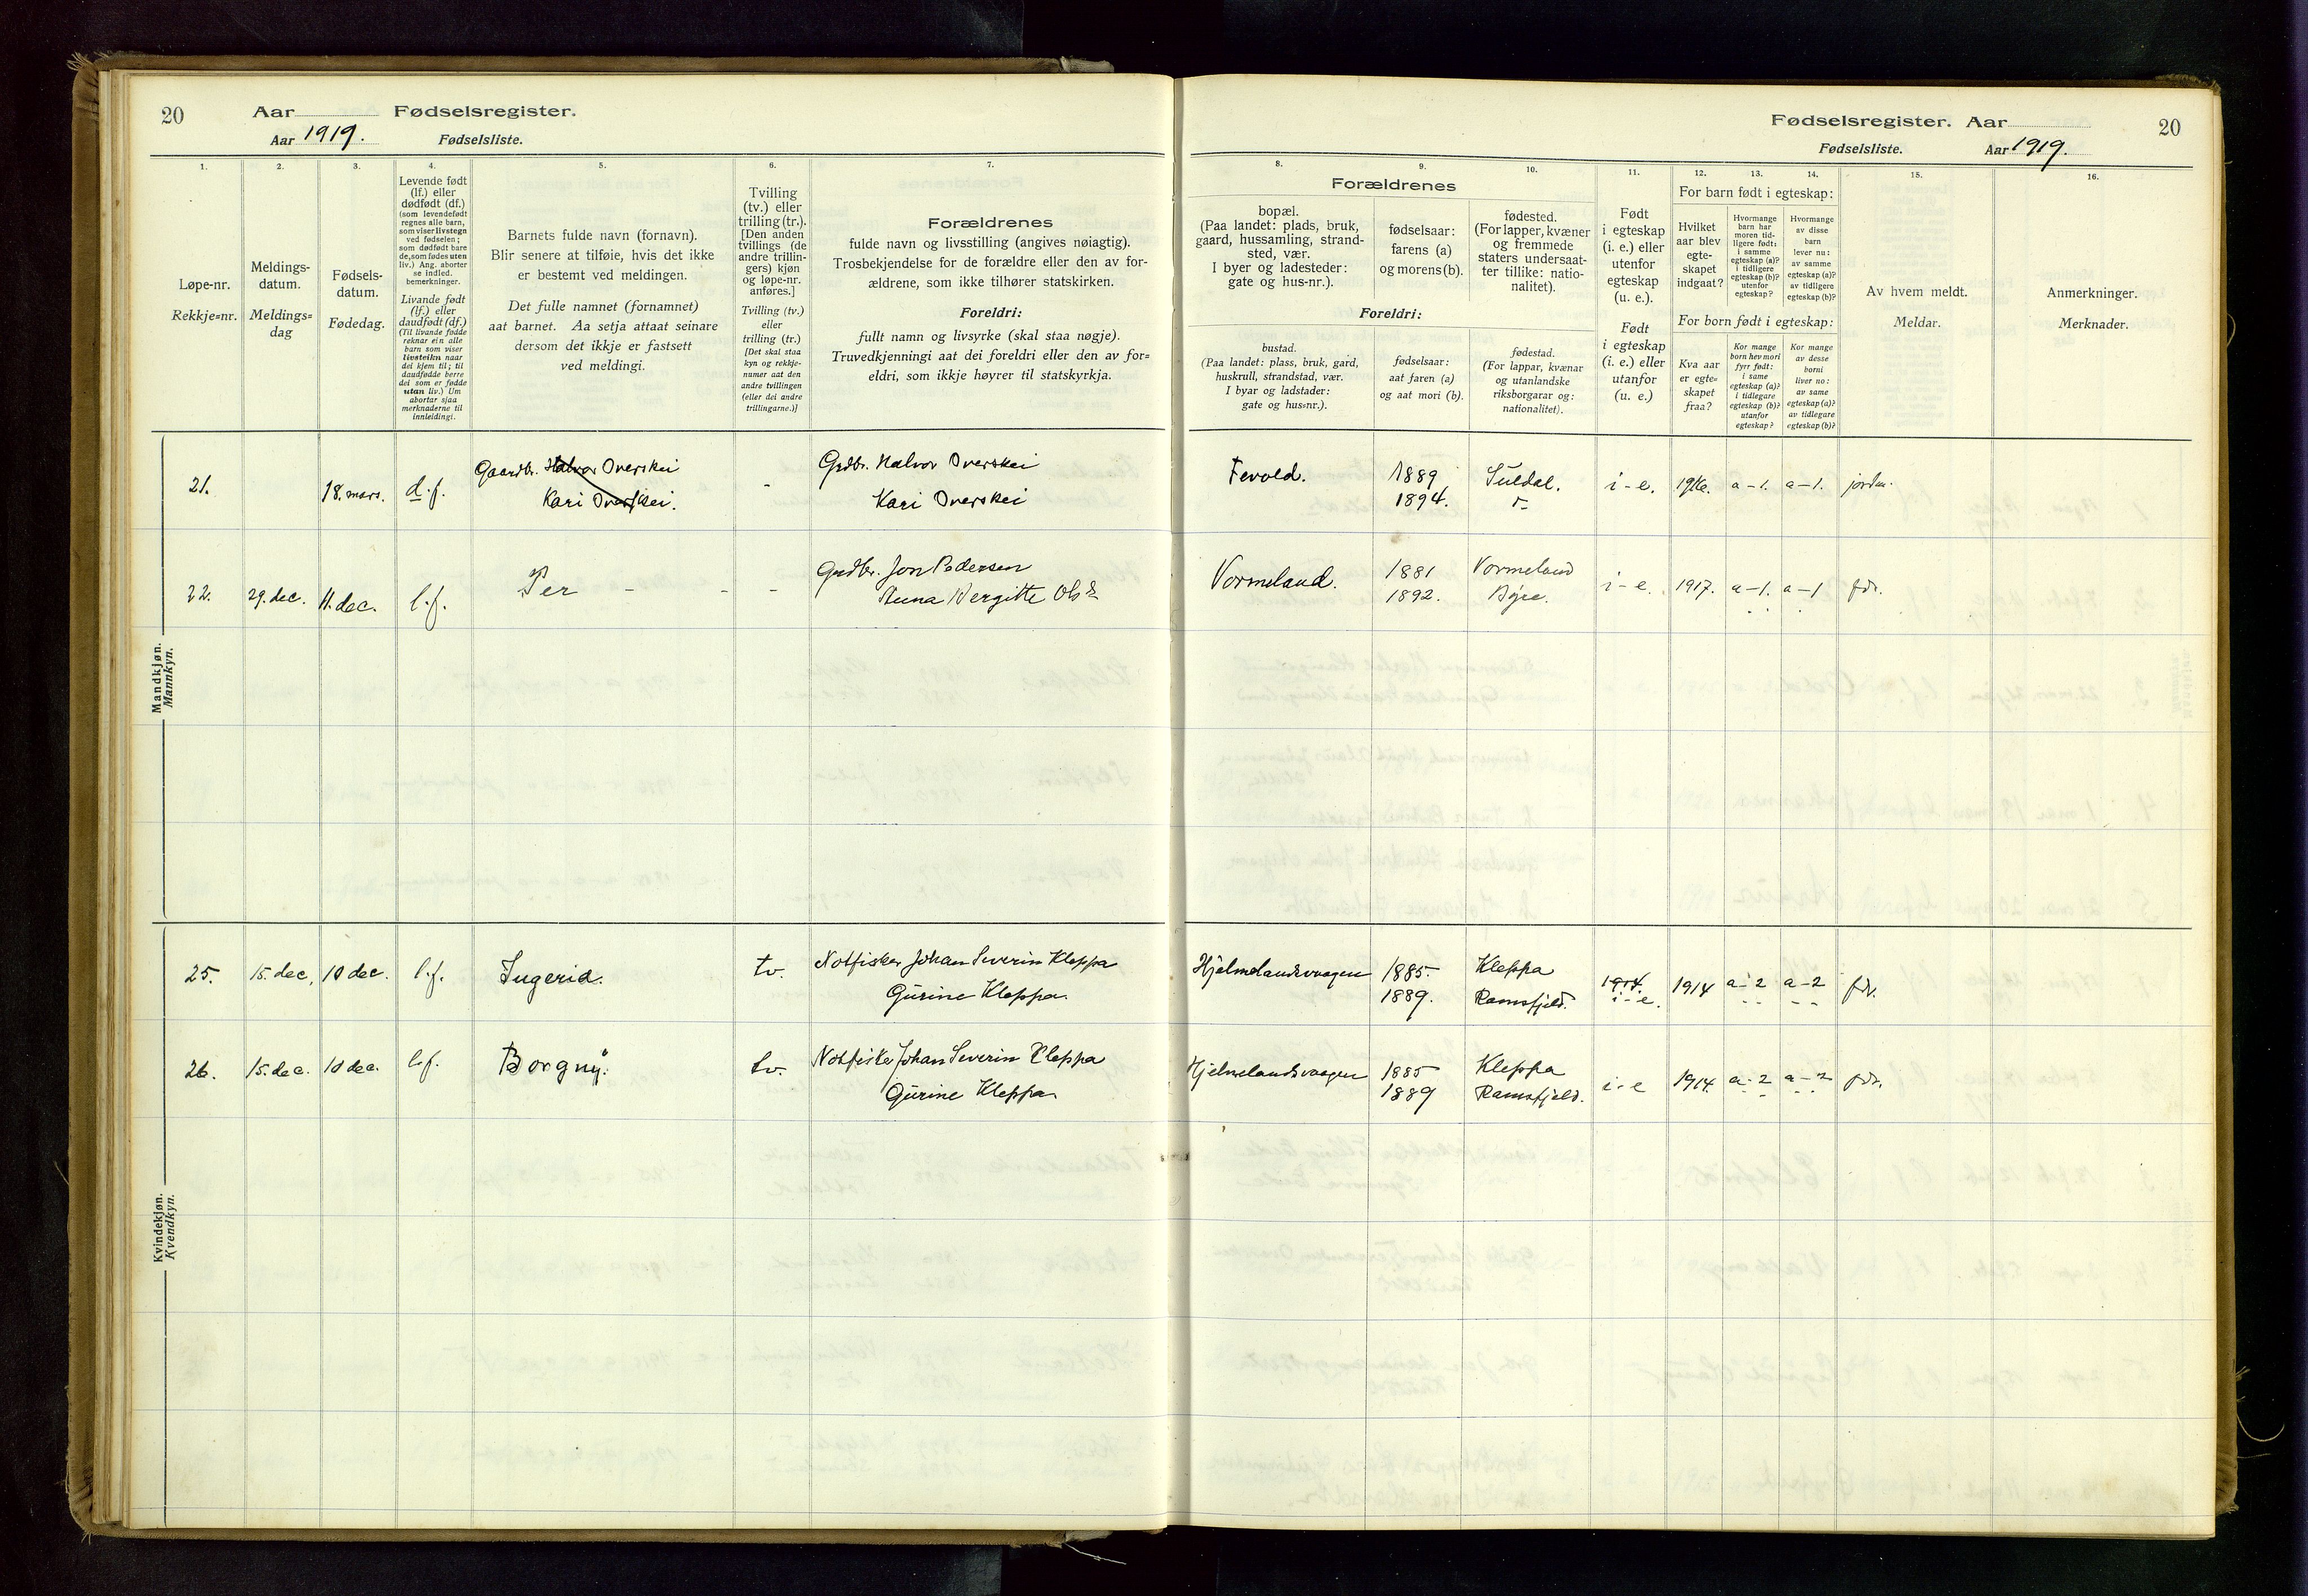 20
Aar
Fødselsregister.
Aar 1919.
Fødselsliste.
1.
2.
3.
4.
5.
6.
7.
Løpe-nr.
Rekkje=nr.
Meldings-
datum.
Meldings=
dag
Fødsels-
datum.
Fødedag.
Levende født
(lf.) eller
dødfødt (df.)
(som levendefødt
regnes alle barn,
som viser livstegn
ved fødselen;
som dødfødt bare
de, som fødes uten
liv.) Ang. aborter
se indled.
bemerkninger.
Livande født
(lf.) eller
daudfødt (df.)
(Til livande fødde
reknar ein alle
barn som viser
livsteikn naar
dei kjem til; til
daudfødde berre
dei som er fødde
utan liv.) Um
abortar sjaa
merknaderne til
innleidingi.
Barnets fulde navn (fornavn).
Blir senere at tilføie, hvis det ikke
er bestemt ved meldingen.
Det fulle namnet (fornamnet)
aat barnet. Aa setja attaat seinare
dersom det ikkje er fastsett
ved meldingi.
Tvilling
(tv.) eller
trilling (tr.).
[Den anden
tvillings (de
andre trillin-
gers) kjøn
og løpe-nr.
anføres.]
Tvilling (tv.)
eller
trilling (tr.)
[Det skal staa
kyn og rekkje-
numer aat den
andre tvillingen
(eller dei andre
trillingarne.)]
Forældrenes
fulde navn og livsstilling (angives nøiagtig).
Trosbekjendelse for de forældre eller den av for-
ældrene, som ikke tilhører statskirken.
Foreldri:
fullt namn og livsyrke (skal staa nøgje).
Truvedkjenningi aat dei foreldri eller den av for=
eldri, som ikkje høyrer til statskyrkja.
Mandkjøn.
Mannkyn.
21.
18. mars.
d.f.
Gaardbr. Halvor Overskei
Kari Overskei.
-
Grdbr. Halvor Overskei
Kari Overskei
22.
29. dec.
11. dec.
l.f.
Per - - -
Grdbr. Jon Pedersen
Anna Bergitte Olsdr.
Kvindekjøn.
Kvendkyn.
25.
15. dec.
10 dec.
l.f.
Ingerid.
tv.
Notfisker Johan Severin Kleppa
Gurine Kleppa.
26.
15. dec.
10 dec.
l.f.
Borgny.
tv.
Notfisker Johan Severin Kleppa
Gurine Kleppa.
Fødselsregister. Aar
20
Fødselsliste.
Aar 1919.
8.
9.
10.
11.
12.
13.
14.
15.
16.
Forældrenes
bopæl.
(Paa landet: plads, bruk,
gaard, hussamling, strand-
sted, vær.
I byer og ladesteder:
gate og hus-nr.).
fødselsaar:
farens (a)
og morens (b).
fødested.
(For lapper, kvæner
og fremmede
staters undersaat-
ter tillike: natio-
nalitet).
Foreldri:
bustad.
(Paa landet: plass, bruk, gard,
huskrull, strandstad, vær.
I byar og ladstader:
gate og hus=nr.).
fødselsaar:
aat faren (a)
og aat mori (b).
fødestad.
(For lappar, kvænar
og utanlandske
riksborgarar og:
nationalitet).
Født
i egteskap
(i. e.) eller
utenfor
egteskap
(u. e.).
Født
i egteskap
(i. e.) eller
utanfor
(u. e.)
For barn født i egteskap:
Hvilket
aar blev
egte-
skapet
indgaat?
Hvormange
barn har
moren tid-
ligere født:
i samme
egteskap (a)?
i tidligere
egteskap (b)?
utenfor
egteskap?
Hvormange
av disse
barn
lever nu:
av samme
egteskap (a)?
av tidligere
egteskap (b)?
For born født i egteskap:
Kva aar
er egte=
skapet
fraa?
Kor mange
born hev mori
fyrr født:
i same
egteskap (a)?
i tidlegare
egteskap (b)?
utanfor
egteskap?
Kor mange
av desse
borni
liver no:
av same
egteskap (a)?
av tidlegare
egteskap (b)?
Av hvem meldt.
Meldar.
Anmerkninger.
Merknader.
Tevold.
1889
1894.
Suldal.
i-e.
1916.
a-1.
a-1.
jordm.
Vormeland.
1881
1892.
Vormeland
Børe.
i-e.
1917.
a-1.
a-1
fdr.
Hjelmelandsvaagen
1885.
1889.
Kleppa
Ramsfjeld.
1914.
i-e.
1914
a-2
a-2
fdr.
Hjelmelandsvaagen
1885
1889
Kleppa
Ramsfjeld.
i-e
1914.
a-2
a-2
fdr.